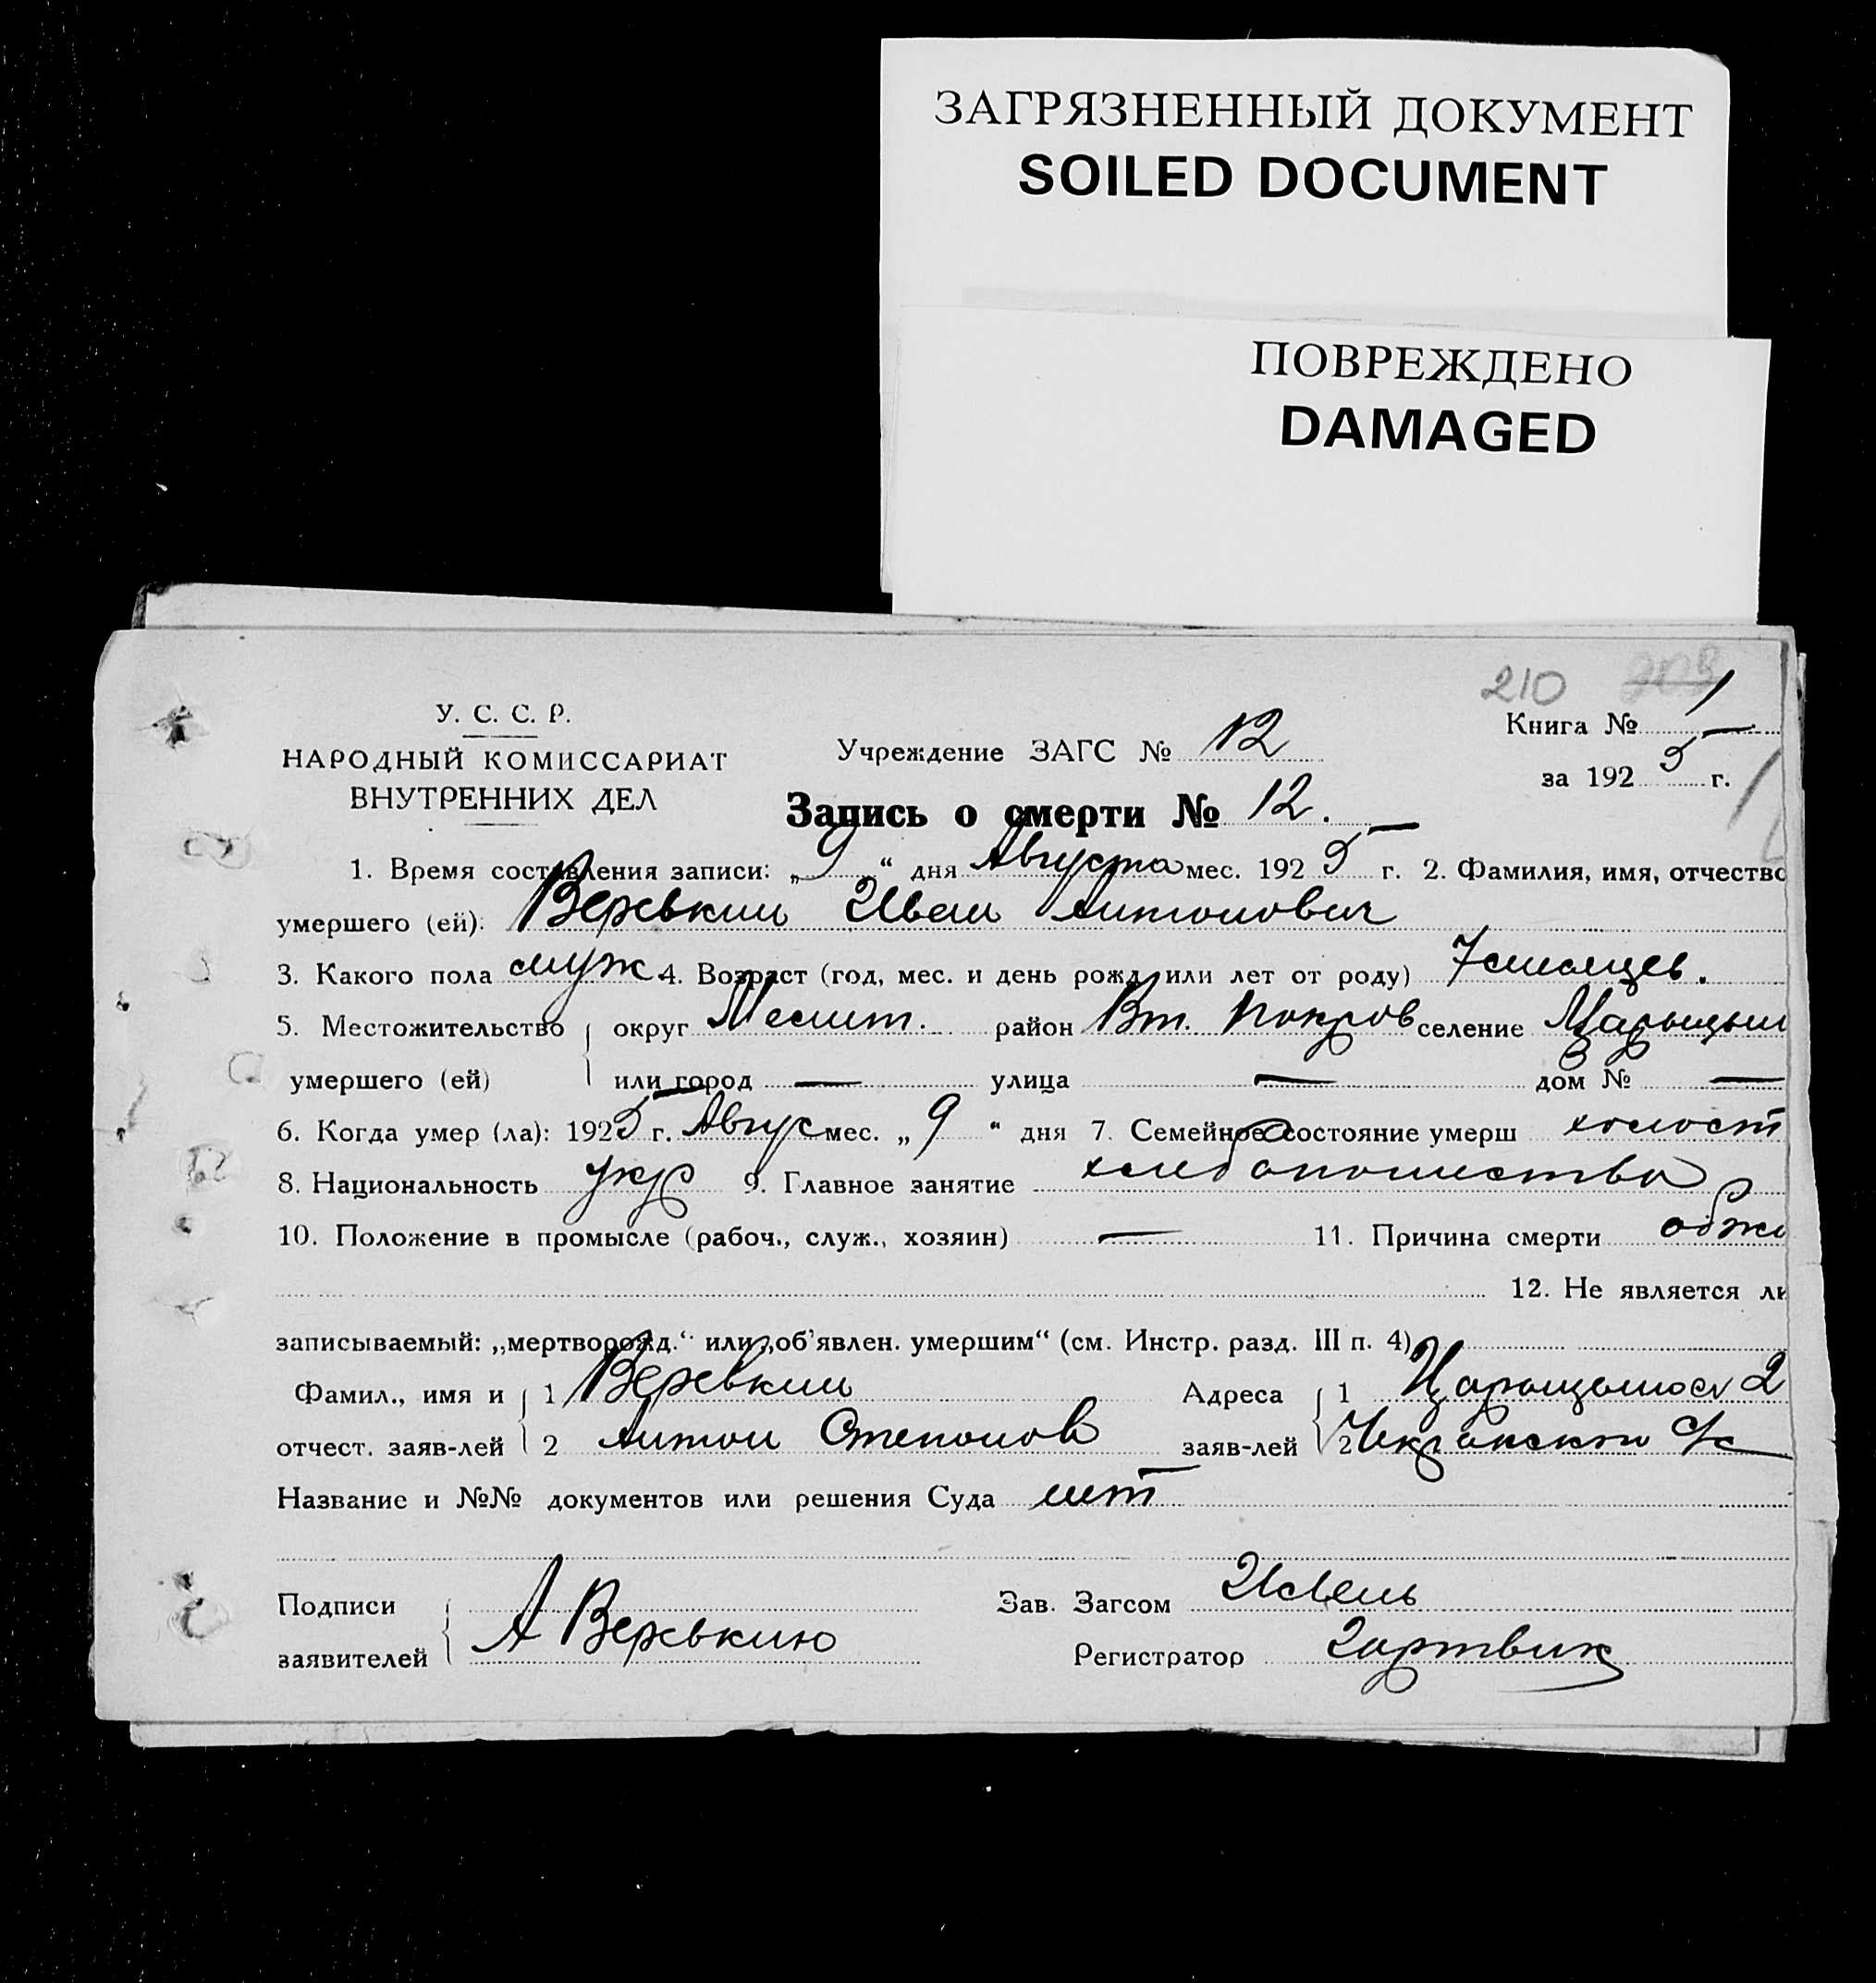 ЗАГРЯЗНЕННЫЙ ДОКУМЕНТ
SOILED DOCUMENT
ПОВРЕЖДЕНО
DAMAGED
210
У. С. С. Р.
НАРОДНЫЙ КОМИССАРИАТ
ВНУТРЕННИХ ДЕЛ
Учреждение ЗАГС № 12
Книга № 1
за 1925 г.
Запись о смерти № 12.
1. Время составления записи: „9“ дня Августа мес. 1925 г. 2. Фамилия, имя, отчество
умершего (ей): Веревкин Иван Антонович
3. Какого пола муж 4. Возраст (год, мес. и день рожд или лет от роду) 7 месяцев.
5. Местожительство округ Мелит. район Вт. Покров селение
умершего (ей) или город — улица — дом № —
6. Когда умер (ла): 1925 г. Август мес. „9“ дня 7. Семейное состояние умерш холост
8. Национальность укр 9. Главное занятие хлебопашество
10. Положение в промысле (рабоч., служ., хозяин) — 11. Причина смерти
12. Не является ли
записываемый: „мертворожд.“ или „об'явлен. умершим“ (см. Инстр. разд. III п. 4)
Фамил., имя и 1 Веревкин Адреса 1
отчест. заяв-лей 2 Антон Степанов заяв-лей 2 с/с
Название и №№ документов или решения Суда нет
Подписи Зав. Загсом
заявителей А Веревкин Регистратор Гартвик